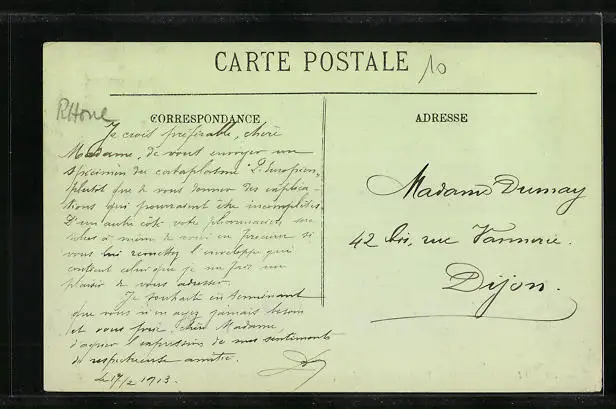 CARTE POSTALE
10
RHone
CORRESPONDANCE
ADRESSE
Je crois préférable, chère
Madame, de vous envoyer un
spécimen du cataplasme
plutôt que de vous donner des explica-
tions qui pourraient être incomplètes.
D'un autre côté votre pharmacien, sera
à même de vous en préciser si
vous lui remettez l'enveloppe qui
contient celui que je me fais un
plaisir de vous adresser.
Je souhaite en terminant
que vous n'en ayez jamais besoin
et vous prie, chère Madame,
d'agréer l'expression de mes sentiments
de respectueuse amitié.
Le 17/2 1913.
Madame Dumay
42 bis, rue Vannerie.
Dijon.